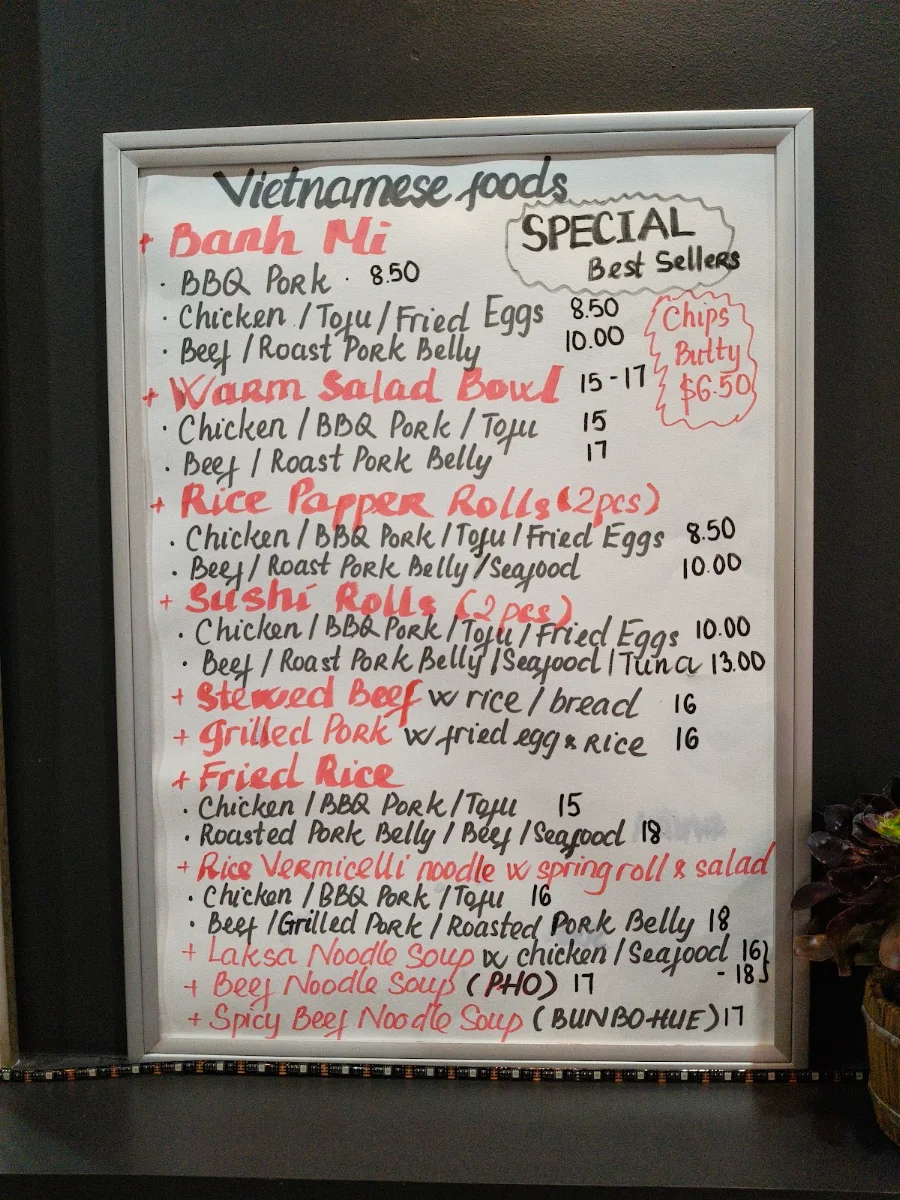 Vietnamese foods
SPECIAL
Best Sellers
+ Banh Mi
· BBQ Pork · 8.50
· Chicken / Tofu / Fried Eggs 8.50
· Beef / Roast Pork Belly 10.00
Chips
Butty
$6.50
+ Warm Salad Bowl 15-17
· Chicken / BBQ Pork / Tofu 15
· Beef / Roast Pork Belly 17
+ Rice Papper Rolls (2pcs)
· Chicken / BBQ Pork / Tofu / Fried Eggs 8.50
· Beef / Roast Pork Belly / Seafood 10.00
+ Sushi Rolls (2pcs)
· Chicken / BBQ Pork / Tofu / Fried Eggs 10.00
· Beef / Roast Pork Belly / Seafood / Tuna 13.00
+ Stewed Beef w rice / bread 16
+ Grilled Pork w fried egg & Rice 16
+ Fried Rice
· Chicken / BBQ Pork / Tofu 15
· Roasted Pork Belly / Beef / Seafood 18
+ Rice Vermicelli noodle w spring roll & salad
· Chicken / BBQ Pork / Tofu 16
· Beef / Grilled Pork / Roasted Pork Belly 18
+ Laksa Noodle Soup w chicken / Seafood 16}
- 18}
+ Beef Noodle Soup (PHO) 17
+ Spicy Beef Noodle Soup (BUNBO-HUE) 17